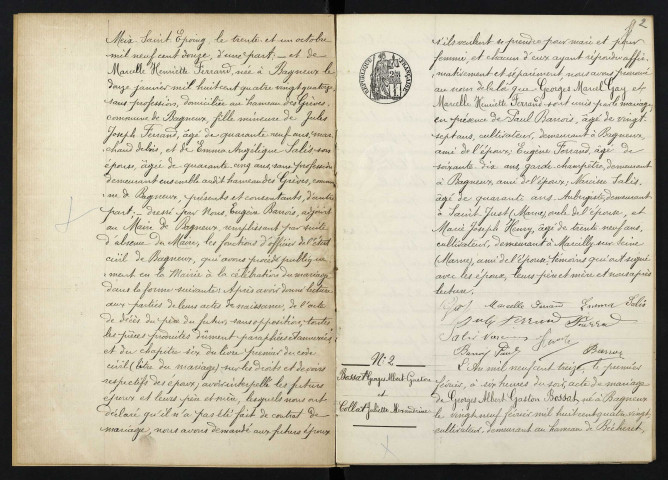 Meix Saint Epoing le trente et un octobre
mil neuf cent douze, d'une part; et de
Marcelle Henriette Ferrand, née à Bagneux le
douze janvier mil huit cent quatre vingt quatorze
sans profession, domiciliée au hameau des Grèves,
commune de Bagneux, fille mineure de Jules
Joseph Ferrand, âgé de quarante neuf ans, mar-
chand de bois, et de Emma Angélique Salis son
épouse, âgée de quarante cinq ans, sans profession
demeurant ensemble audit hameau des Grèves, commu-
ne de Bagneux, présents et consentants, d'autre
part; dressé par Nous, Eugène Barrois, adjoint
au Maire de Bagneux, remplissant par suite
d'absence du Maire, les fonctions d'officier de l'état
civil de Bagneux, qui avons procédé publique-
ment en la Mairie à la célébration du mariage
dans la forme suivante: Après avoir donné lecture
aux parties de leurs actes de naissance, de l'acte
de décès du père du futur, sans opposition, toutes
les pièces produites dûment paraphées et annexées
et du chapitre six du livre premier du code
civil (titre du mariage) sur les droits et devoirs
respectifs des époux; avons interpellé les futurs
époux et leurs père et mère, lesquels nous ont
déclaré qu'il n'a pas été fait de contrat de
mariage, nous avons demandé aux futurs époux
2
REPUBLIQUE FRANÇAISE
s'ils veulent se prendre pour mari et pour
femme, et chacun d'eux ayant répondu affir-
mativement et séparément, nous avons prononcé
au nom de la loi que Georges Marcel Gay et
Marcelle Henriette Ferrand sont unis par le mariage,
en présence de Paul Barrois, âgé de vingt-
sept ans, cultivateur, demeurant à Bagneux,
ami de l'époux; Eugène Ferrand, âgé de
soixante dix ans, garde champêtre, demeurant
à Bagneux, ami de l'époux; Narcisse Salis,
âgé de quarante ans, Aubergiste, demeurant
à Saint Just (Marne), oncle de l'épouse, et
Marie Joseph Henry, âgé de trente neuf ans,
cultivateur, demeurant à Marcilly sur Seine
(Marne), ami de l'épouse; témoins qui ont signé
avec les époux, leurs père et mère et nous après
lecture.
Marcelle Ferrand Emma Salis
Ferrand
Barrois Paul Barrois
N° 2
Bossat Georges Albert Gaston
et
Collat Juliette
L'An mil neuf cent treize, le premier
février, à six heures du soir, acte de mariage
de Georges Albert Gaston Bossat, né à Bagneux
le vingt neuf février mil huit cent quatre vingt,
cultivateur, demeurant au hameau de Bécheret,